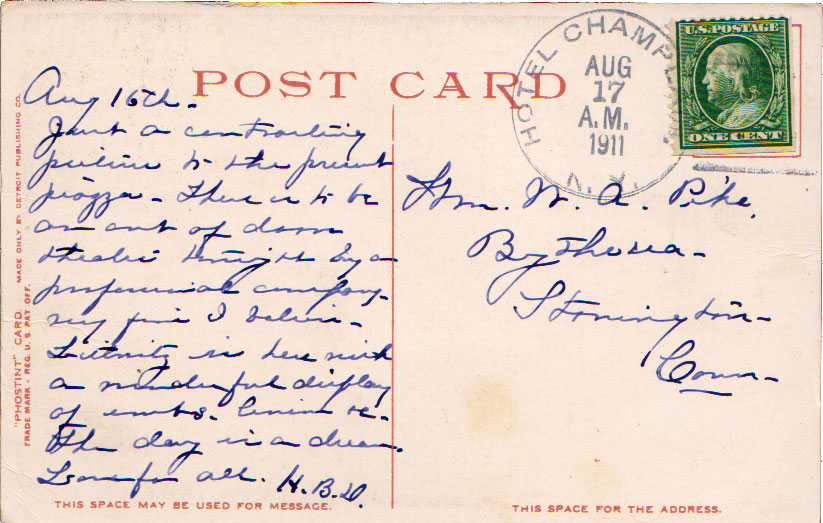 POST CARD
HOTEL CHAMPLAIN
AUG
17
A.M.
1911
N.Y.
U.S. POSTAGE
ONE CENT
Aug 16th.
Just a contrasting
picture to the present
piazza. There is to be
an out of door
theatre tonight by a
professional company.
very fine I believe.
is here with
a wonderful display
of
The day is a dream.
Love for all. H.B.D.
W. A. Pike,
By the sea
Stonington
Conn
"PHOSTINT" CARD. MADE ONLY BY DETROIT PUBLISHING CO.
TRADE MARK - REG. U. S. PAT OFF.
THIS SPACE MAY BE USED FOR MESSAGE.
THIS SPACE FOR THE ADDRESS.